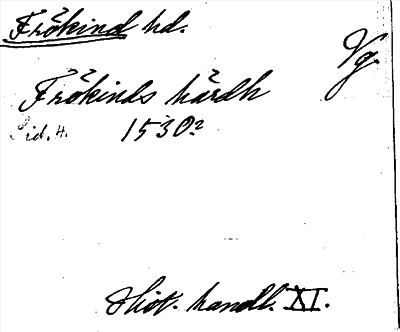 Frökind hd.
Vg.
Frökinds härdh
Sid. 4. 1530?
Hist. handl. XI.